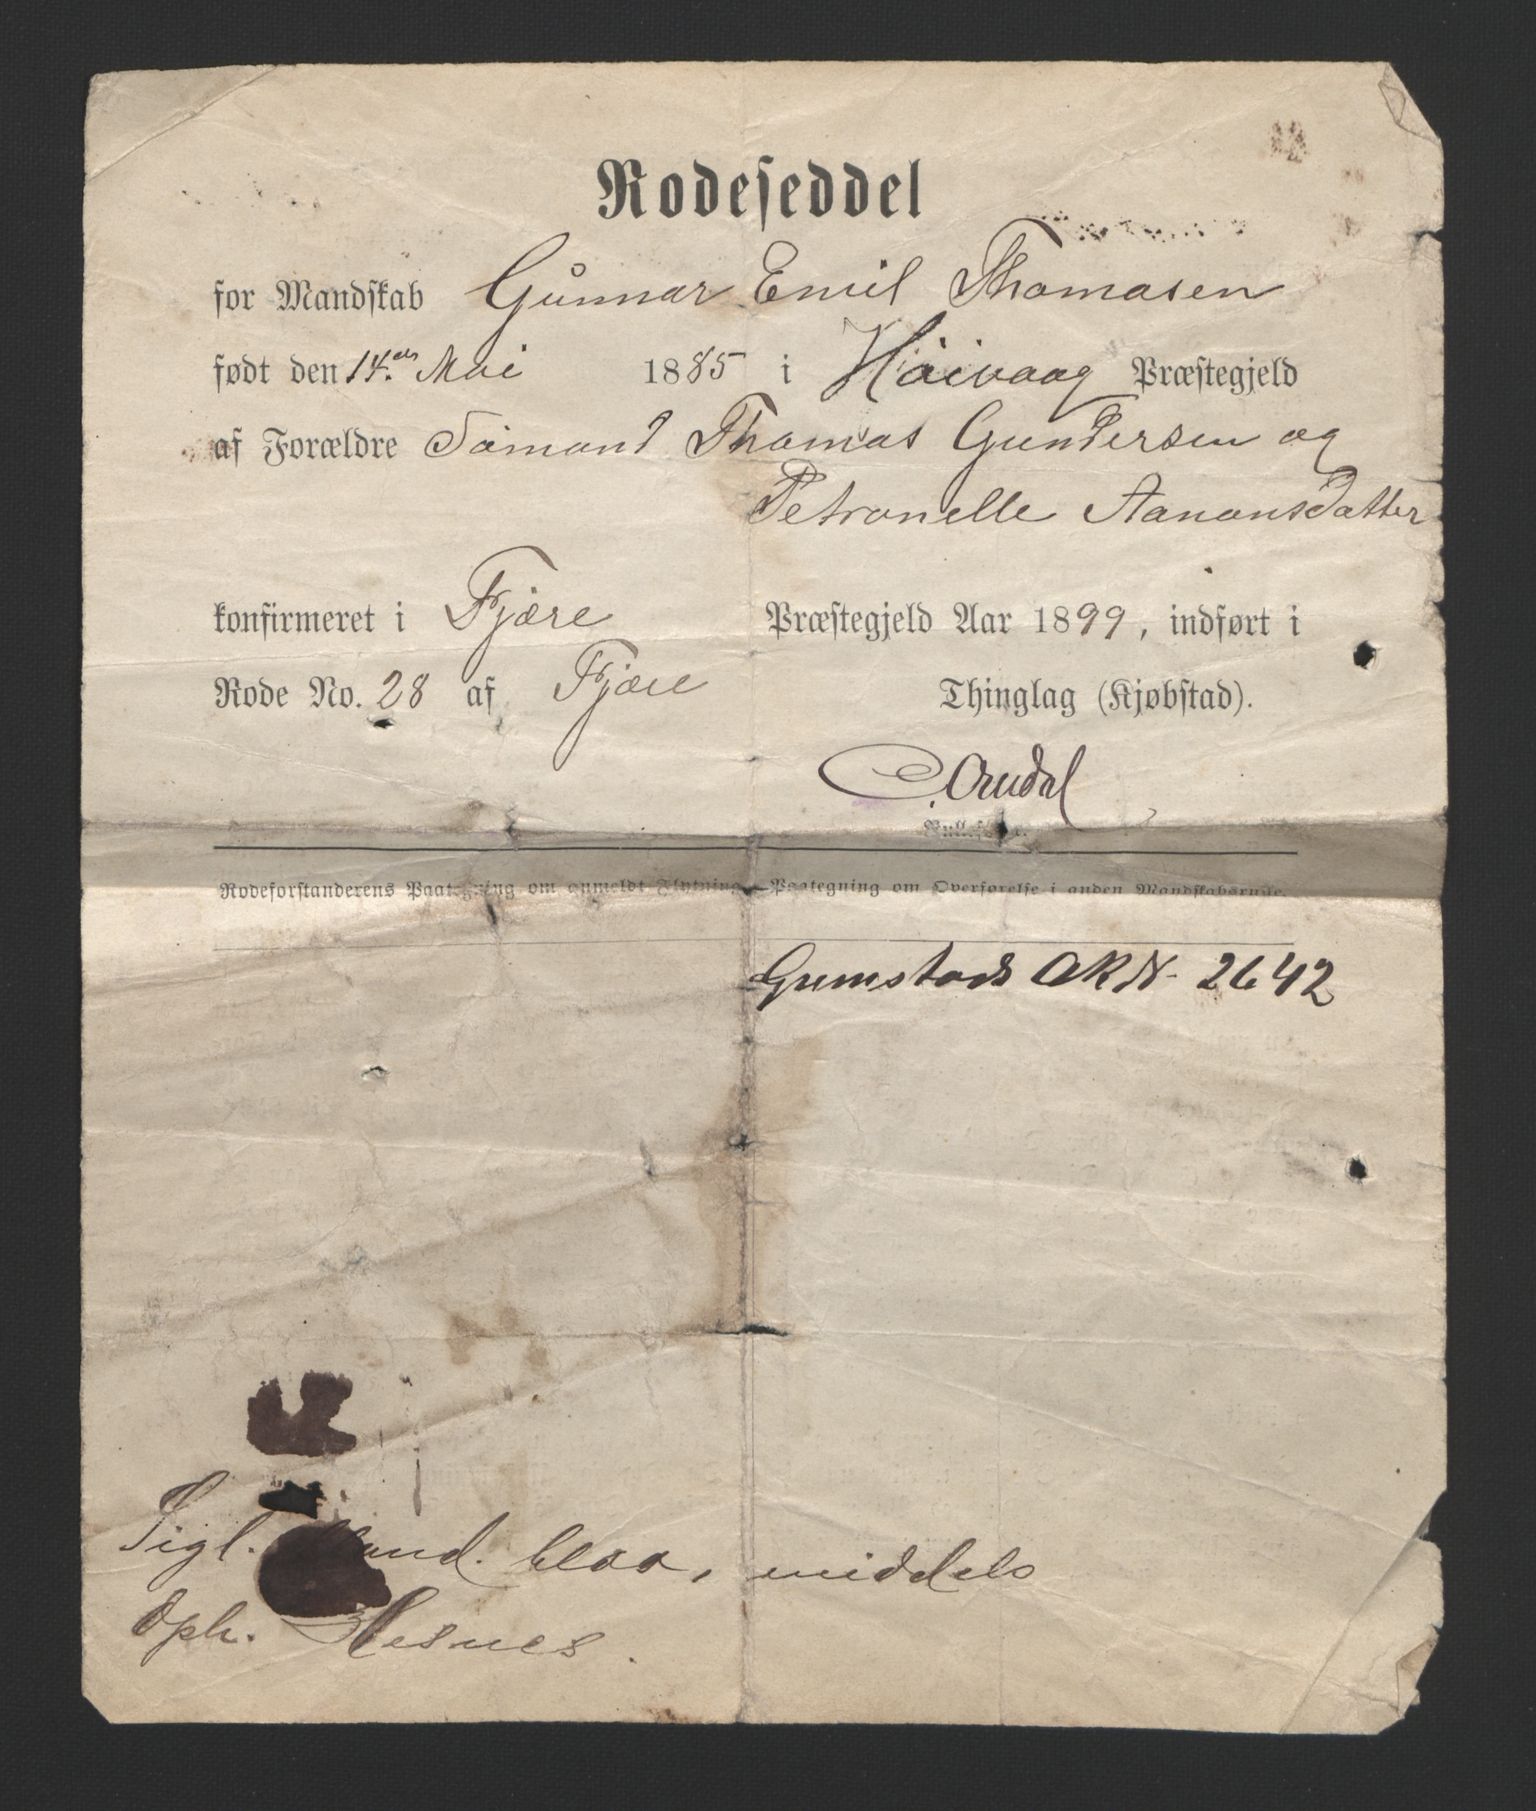 Rodeseddel
for Mandskab Gunnar Emil Thomasen
født den 14.de Mai 1885 i Høivaag Præstegjeld
af Forældre Sømand Thomas Gundersen og
Petronelle Aanonsdatter
konfirmeret i Fjære Præstegjeld Aar 1899, indført i
Rode No. 28 af Fjære Thinglag (Kjøbstad).
C. Omdal
Rodeforstanderens Paategning om anmeldt Flytning. Paategning om Overførelse i anden Mandskabsrulle.
Grimstads 2642
Sigl. blaa, middels
Oph. Hesnes.